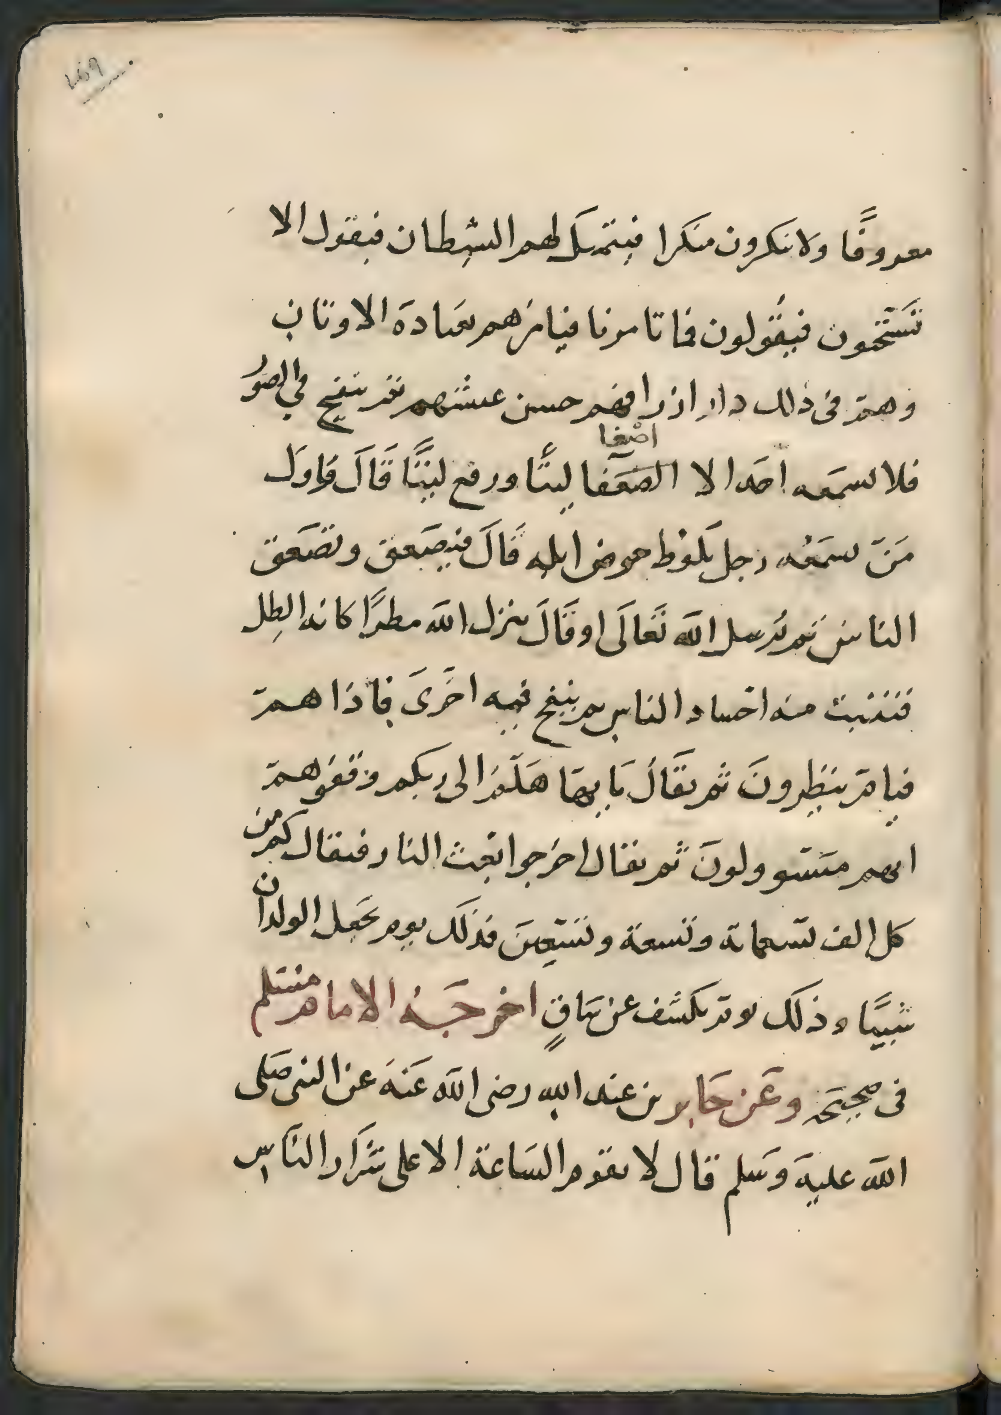 ١٦٩
معروفًا ولا ينكرون منكرا فيتمثل لهم الشيطان فيقول الا
تستحيون فيقولون فما تامرنا فيامرهم بعبادة الاوثان
وهم في ذلك دار ارزاقهم حسن عيشهم ثم ينفخ في الصور
اصغا
فلا يسمعه احد الا اصغا ليتًا ورفع ليتًا قال واول
من يسمعه رجل يلوط حوض ابله قال فيصعق ويصعق
الناس ثم يرسل الله تعالى او قال ينزل الله مطرًا كانه الطل
فتنبت منه اجساد الناس ثم ينفخ فيه اخرى فاذا هم
قيام ينظرون ثم يقال يا ايها هلم الى ربكم وقفوهم
انهم مسوولون ثم يقال اخرجوا بعث النار فيقال كم من
كل الف تسعماية وتسعة وتسعين فذلك يوم يجعل الولدان
شيبًا وذلك يوم يكشف عن ساقٍ اخرجه الامام مسلم
في صحيحه وعن جابر بن عبد الله رضي الله عنه عن النبي صلى
الله عليه وسلم قال لا تقوم الساعة الا على شرار الناس